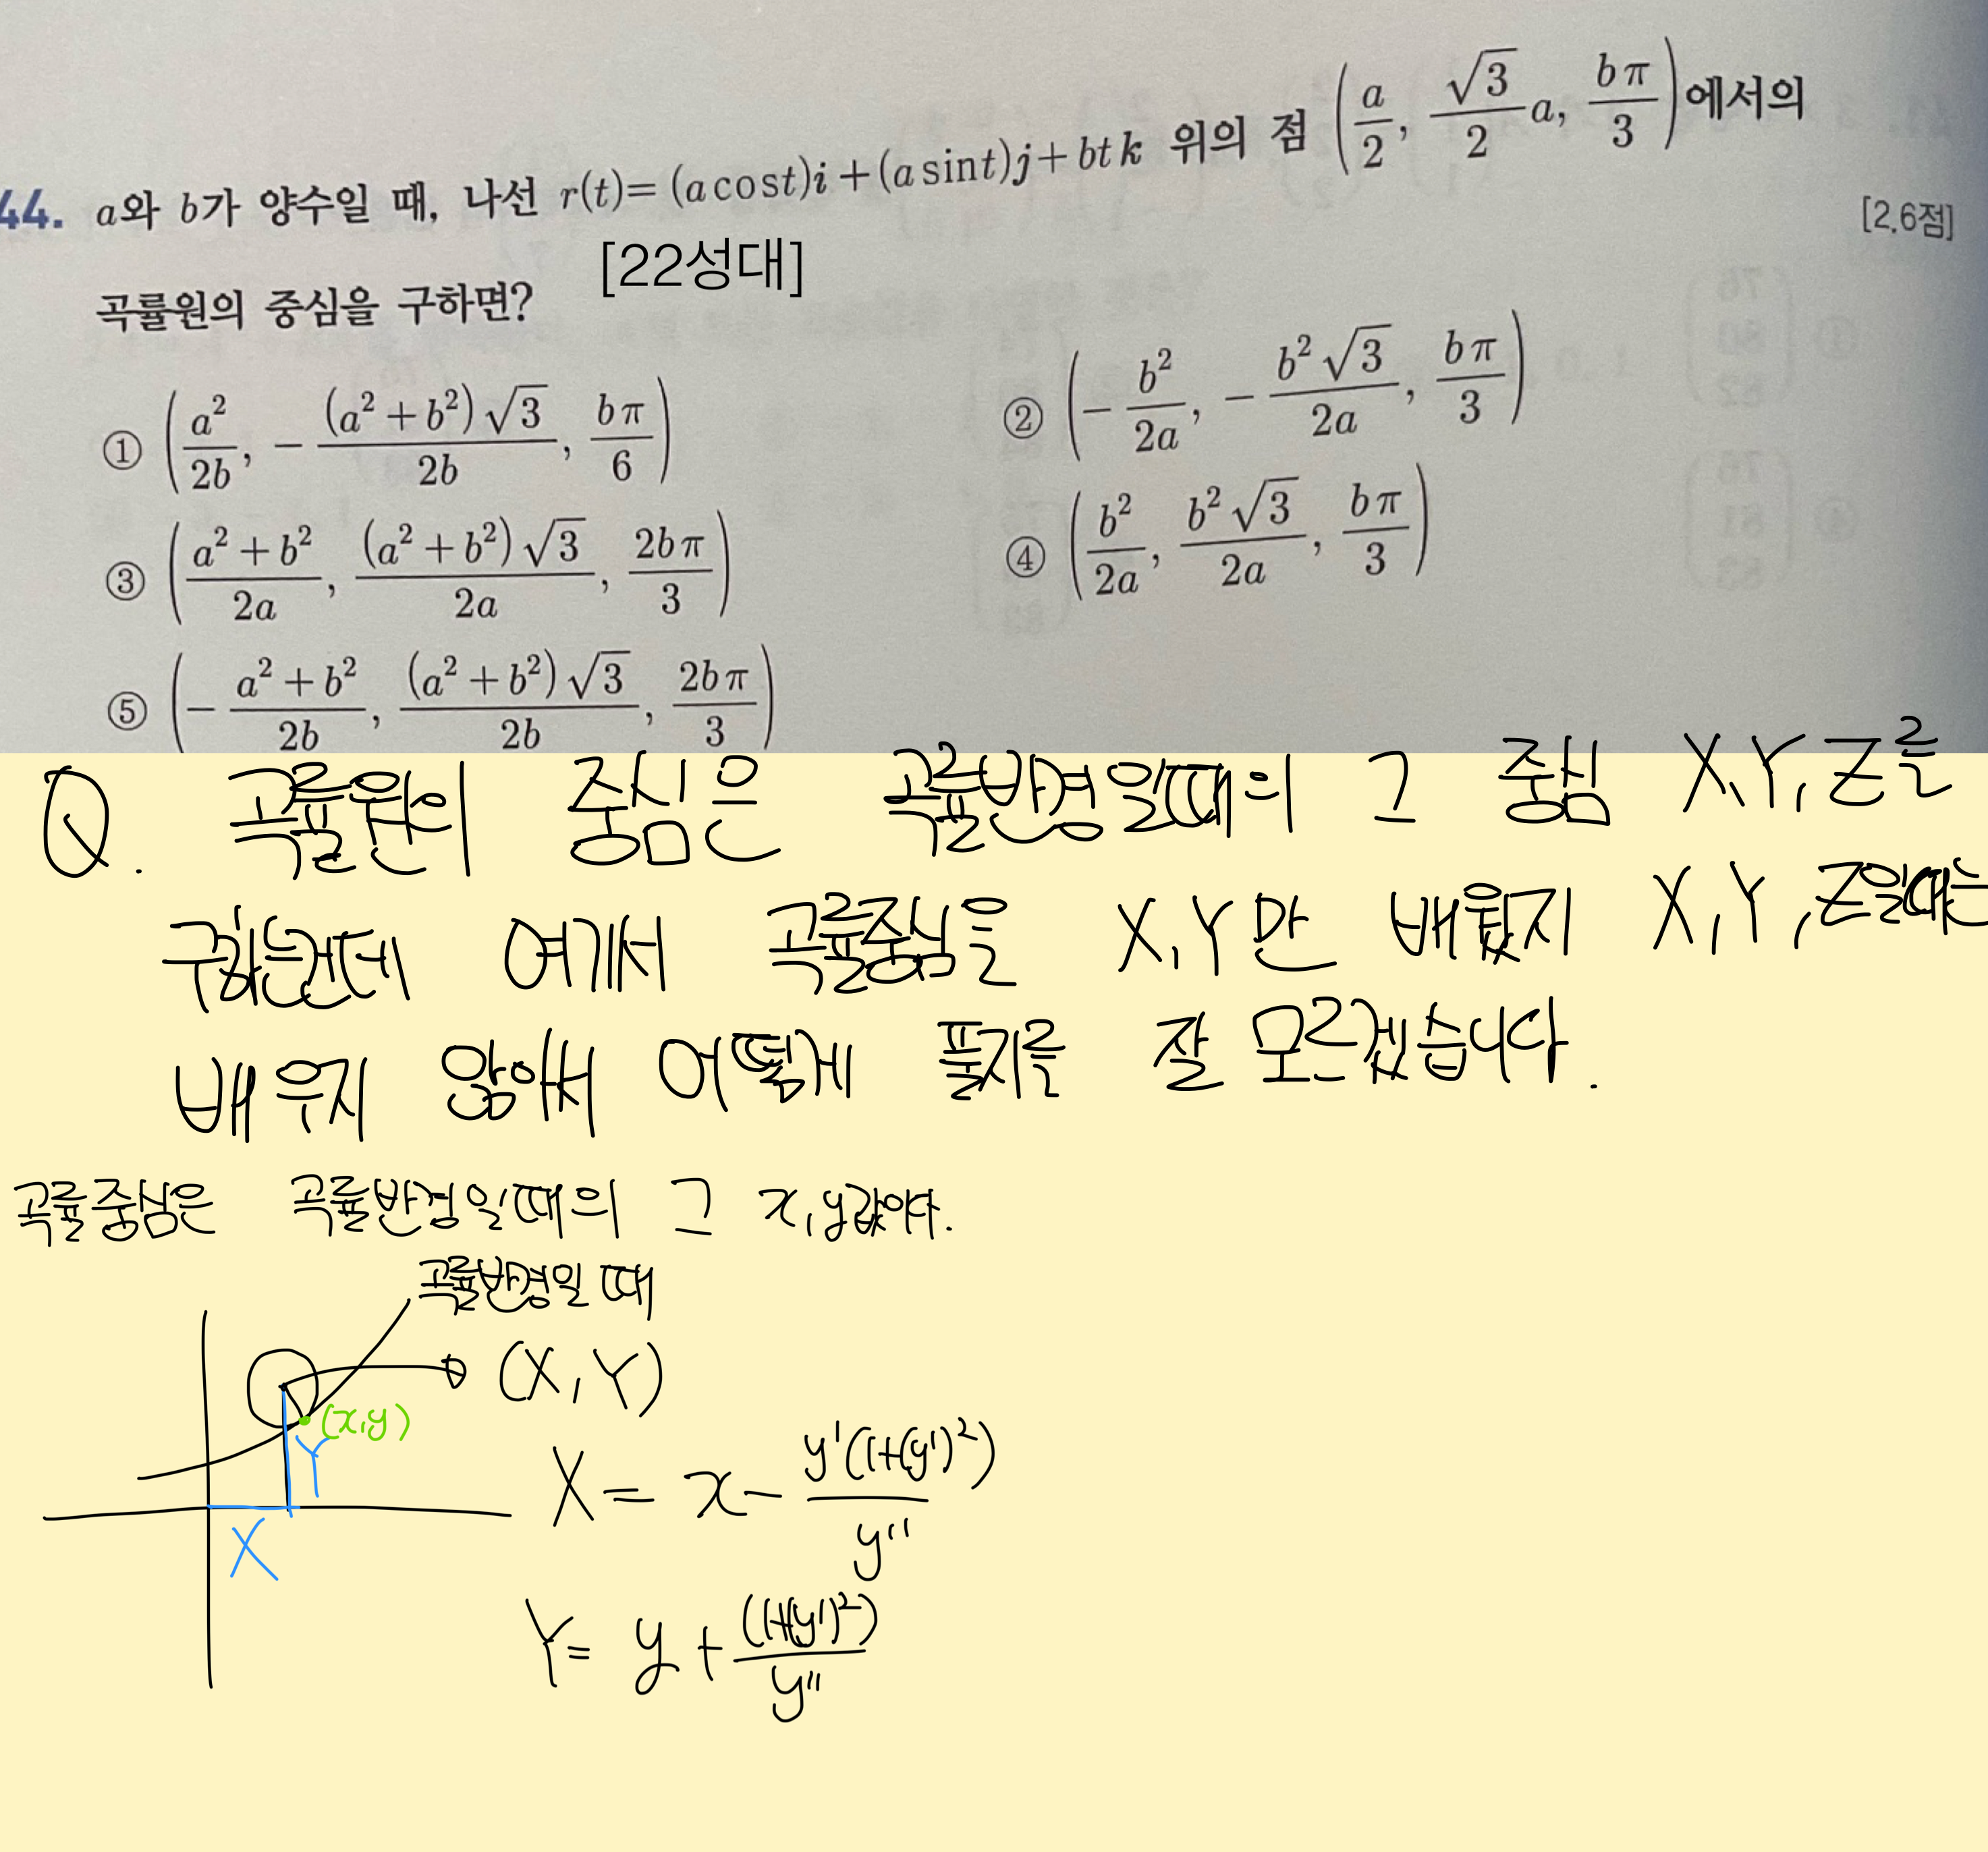 44. a와 b가 양수일 때, 나선 r(t)= (a cost)i + (a sint)j + bt k 위의 점 (a/2, √3/2 a, bπ/3)에서의
[2.6점]
곡률원의 중심을 구하면? [22성대]
① (a²/2b, -(a²+b²)√3/2b, bπ/6) ② (-b²/2a, -b²√3/2a, bπ/3)
③ (a²+b²/2a, (a²+b²)√3/2a, 2bπ/3) ④ (b²/2a, b²√3/2a, bπ/3)
⑤ (-a²+b²/2b, (a²+b²)√3/2b, 2bπ/3)
Q. 곡률원의 중심은 곡률반경일때의 그 중심 X,Y,Z를
구하는건데 여기서 곡률중심을 X,Y만 배웠지 X,Y,Z일때는
배우지 않아서 어떻게 풀지를 잘 모르겠습니다.
곡률중심은 곡률반경일때의 그 x,y값이다.
곡률반경일 때
(X,Y)
(x,y)
Y
X
X = x - y'(1+(y')²)/y''
Y = y + (1+(y')²)/y''